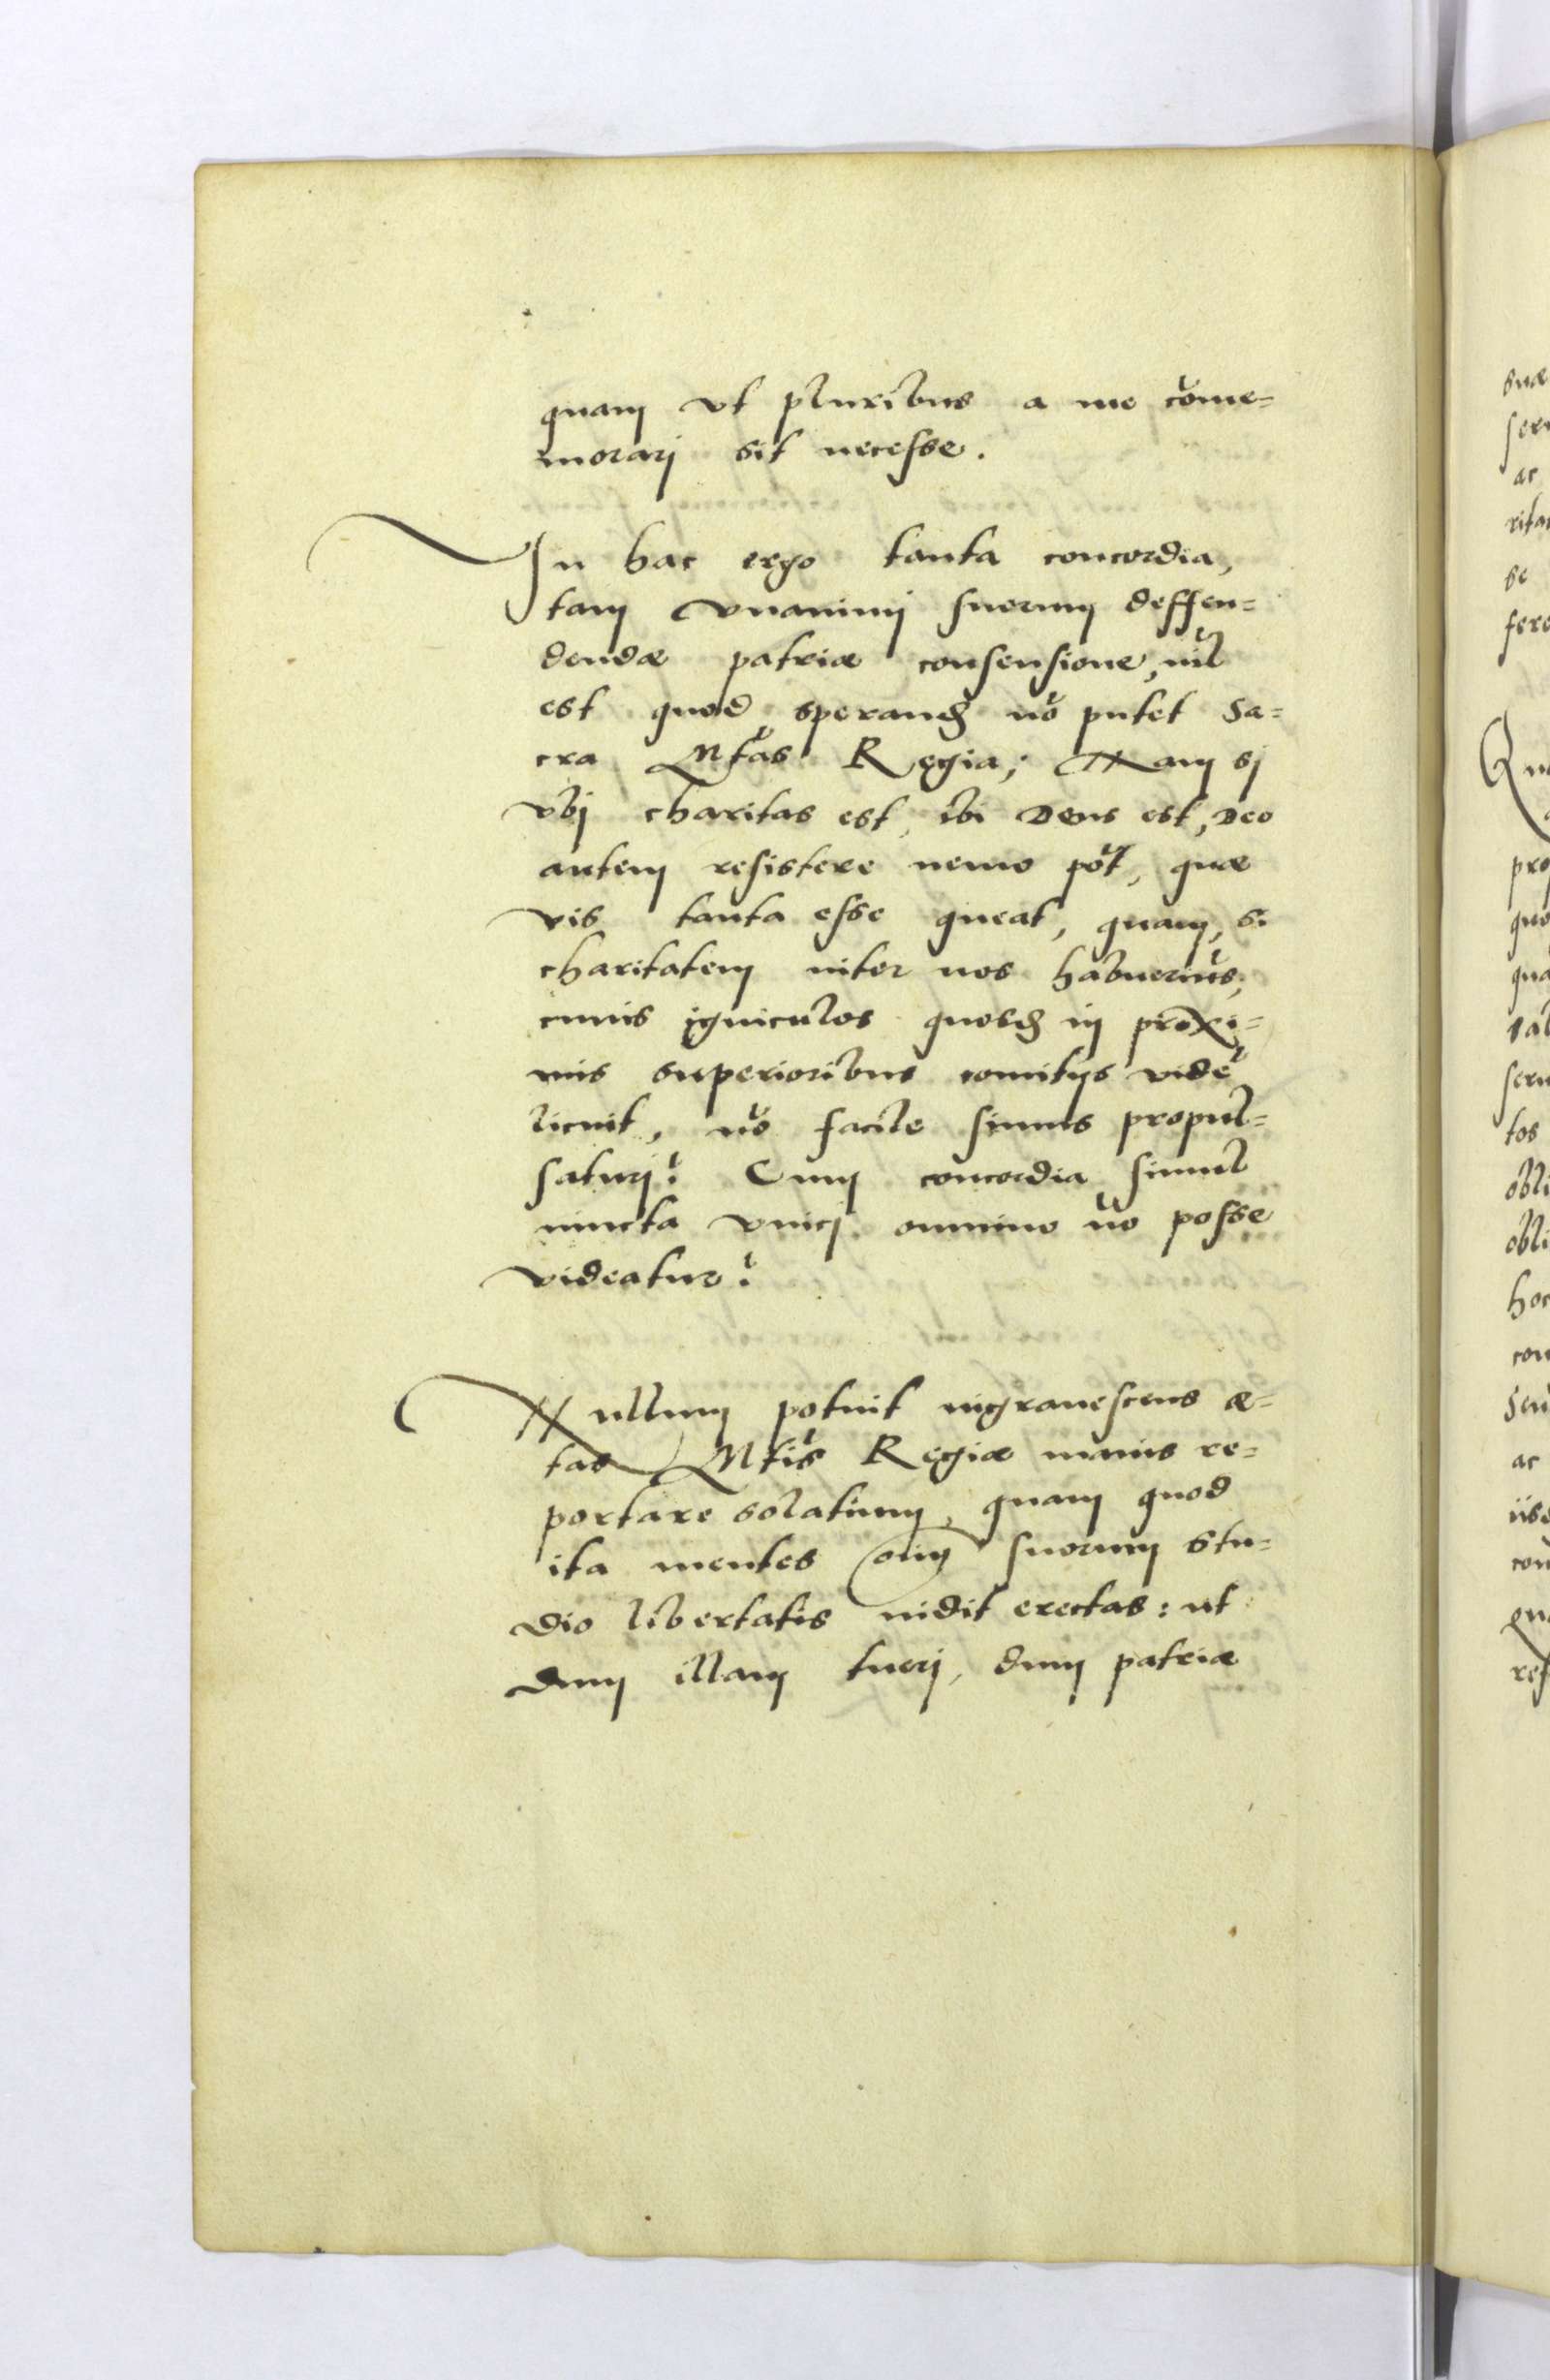 quam vt pluribus a me cõme=
morarj sit necesse.
In hac ergo tanta concordia,
tam vnanimj suorum deffen=
dendæ patriæ consensione, nil
est quod sperand nõ putet Sa=
cra Mtas Regia; Nam sj
vbj charitas est, ibi Deus est, Deo
autem resistere nemo põt, quæ
vis tanta esse queat, quam, si
charitatem inter nos habuerim9,
cuius igniculos quosd in proxi=
mis superioribus comitijs vidẽ
licuit, nõ facile simus propul=
saturj? Cum concordia simul
iuncta vincj omnino nõ posse
videatur?
Nullum potuit ingrauescens æ=
tas Mtis Regiæ maius re=
portare solatium, quam quod
ita mentes oim suorum stu=
dio libertatis uidit erectas: ut
dum illam tuerj, dum patriæ